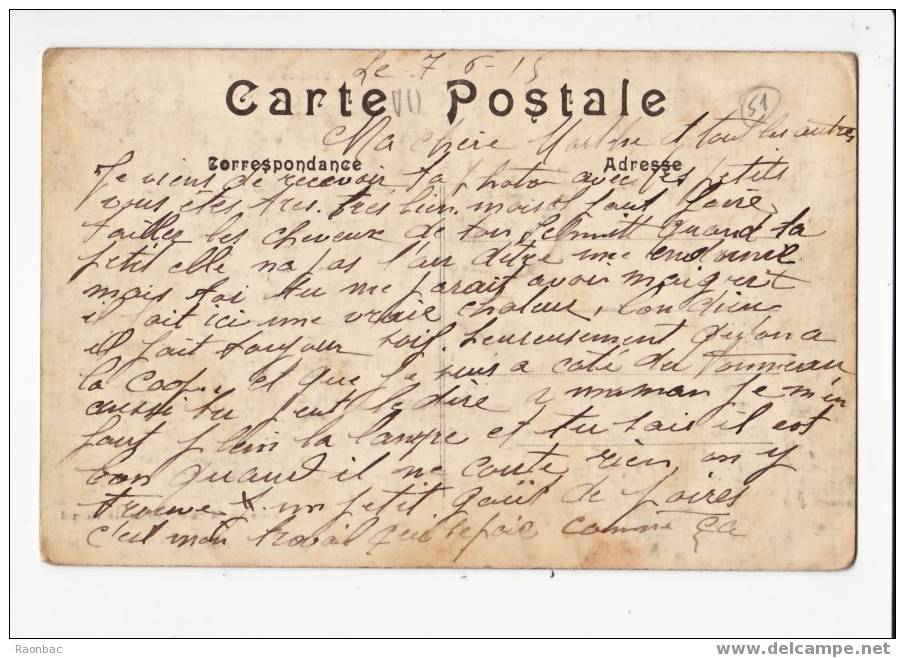 Le 7 6-15
Carte Postale
51
Ma chère Marthe et tout les autres
Correspondance Adresse
Je viens de recevoir ta photo avec les petits
vous êtes tres. tres bien. mais il faut faire
tailler les cheveux de ton Schmitt quand ta
petit elle na pas l'air dêtre une endormie
mais toi tu me parait avoir maigrert
il fait ici une vraie chaleur, bon dieu
il fait toujour soif. heureusement qu'on a
la coop. et que je suis a coté du tonneau
aussi tu peut le dire a maman je m'en
fout plein la lampe et tu sais il est
bon quand il ne coute rien on y
trouve un petit goût de poires
c'est mon travail qui se paie comme ça
Raonbac
www.delcampe.net